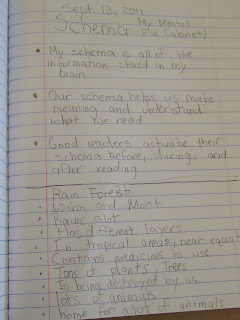 Sept. 13, 2011
Schema My Mental
File Cabinet!
• My schema is all of the
information stored in my
brain.
• Our schema helps us make
meaning and understand
what we read
• Good readers activate their
schema before, during, and
after reading
Rain Forest
• Warm and Moist
• Rains alot
• Has different layers
• In tropical areas, near equat
• Contains medicines to use
• Tons of plants, Trees
• Is being destroyed by us
• lots of animals
• home for alot of animals